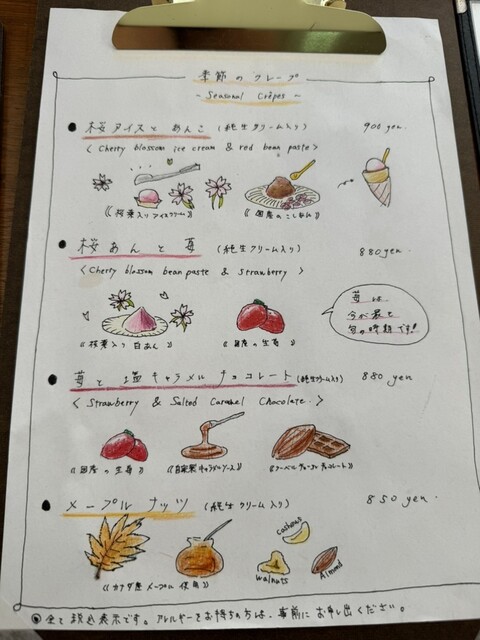 季節のクレープ
~ Seasonal Crêpes ~
● 桜アイスと あんこ (純生クリーム入り) 900 yen.
< Cherry blossom ice cream & red bean paste >
《桜葉入りアイスクリーム》 《国産のこしあん》
● 桜あんと苺 (純生クリーム入り) 880 yen.
< Cherry blossom bean paste & strawberry >
苺は
今が最も
旬の時期です!
《桜葉入り白あん》 《国産の生苺》
● 苺と塩キャラメルチョコレート (純生クリーム入り) 880 yen
< Strawberry & Salted Caramel Chocolate. >
《国産の生苺》 《自家製キャラメルソース》 《クーベルチュールチョコレート》
● メープルナッツ (純生クリーム入り) 850 yen.
cashews
walnuts
Almond
《カナダ産メープル使用》
◎ 全て税込表示です。アレルギーをお持ちの方は、事前にお申し出ください。